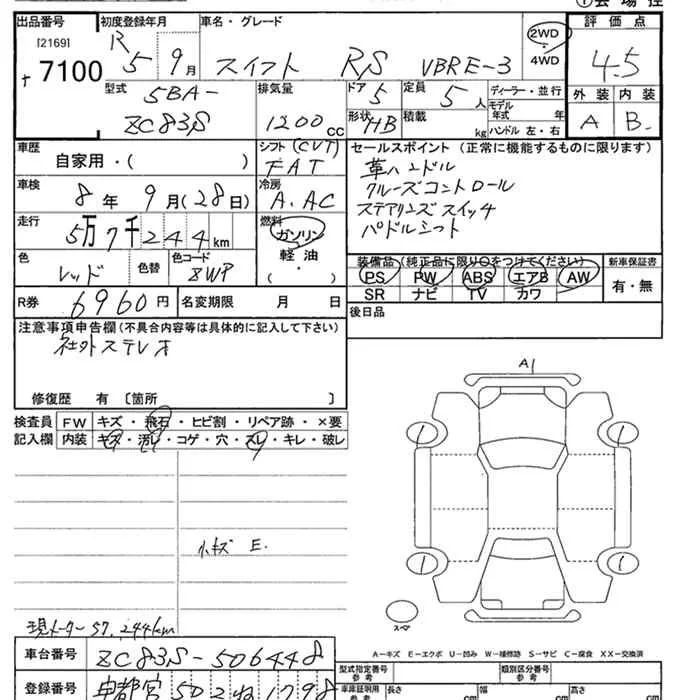 ①会場控
出品番号 初度登録年月 車名・グレード 評価点
[2169] R 5 9月 スイフト RS VBRE-3 2WD・4WD 4.5
7100
型式 5BA- 排気量 ドア 5 定員 5人 ディーラー・並行 外装 内装
ZC83S 1200cc 形状 HB 積載 kg モデル年式 年 A B
ハンドル 左・右
車歴 シフト(CVT) セールスポイント(正常に機能するものに限ります)
自家用・( ) FAT 革ハンドル
車検 冷房 クルーズコントロール
8年9月(28日) A.AC ステアリングスイッチ
走行 燃料 パドルシフト
5万7千244km ガソリン
軽油
( )
色 色替 色コード 装備品(純正品に限り○をつけてください) 新車保証書
レッド ZWP PS PW ABS エアB AW 有・無
SR ナビ TV カワ
R券 6960円 名変期限 月 日 後日品
注意事項申告欄(不具合内容等は具体的に記入して下さい)
社外ステレオ
修復歴 有 〔箇所 〕
A1
検査員 FW キズ・飛石・ヒビ割・リペア跡・×要
記入欄 内装 キズ・汚レ・コゲ・穴・スレ・キレ・破レ
小キズ E.
現メーター 57,244km
スペア
A−キズ E−エクボ U−凹み W−補修跡 S−サビ C−腐食 XX−交換済
車台番号 ZC83S-506448
型式指定番号 参考 類別区分番号 参考
登録番号 宇都宮 502 1798
車庫証明用 参考 長さ cm 幅 cm 高さ cm